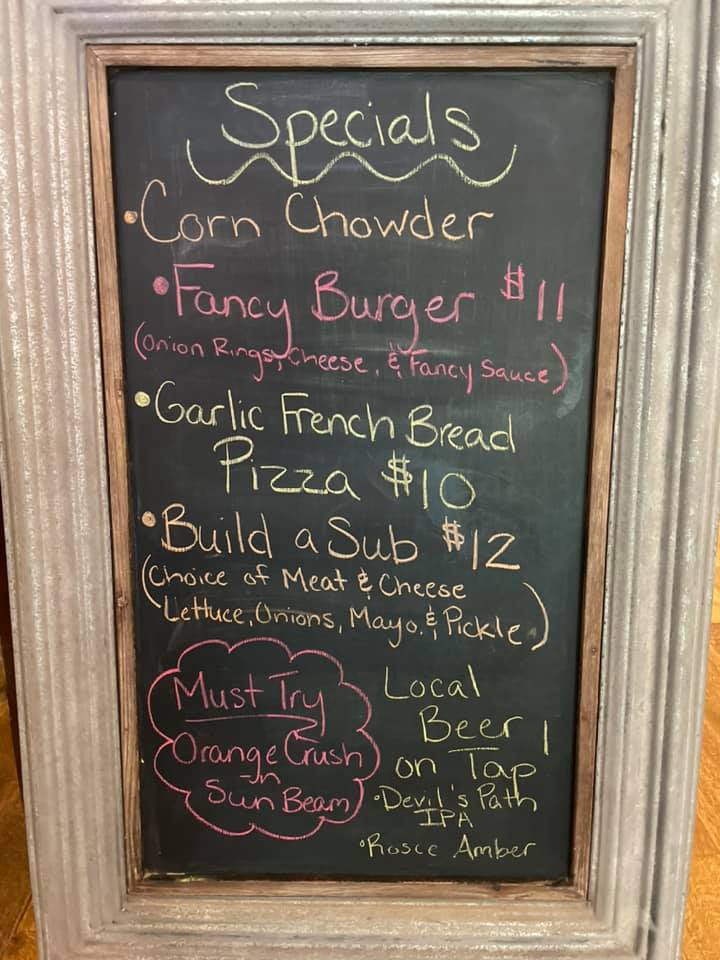 Specials
• Corn Chowder
• Fancy Burger $11
(Onion Rings, Cheese, & Fancy Sauce)
• Garlic French Bread
Pizza $10
• Build a Sub $12
(Choice of Meat & Cheese
Lettuce, Onions, Mayo. & Pickle)
Must Try
Orange Crush
-Jn
Sun Beam
Local
Beer
on Tap
• Devil's Path
IPA
• Rosce Amber